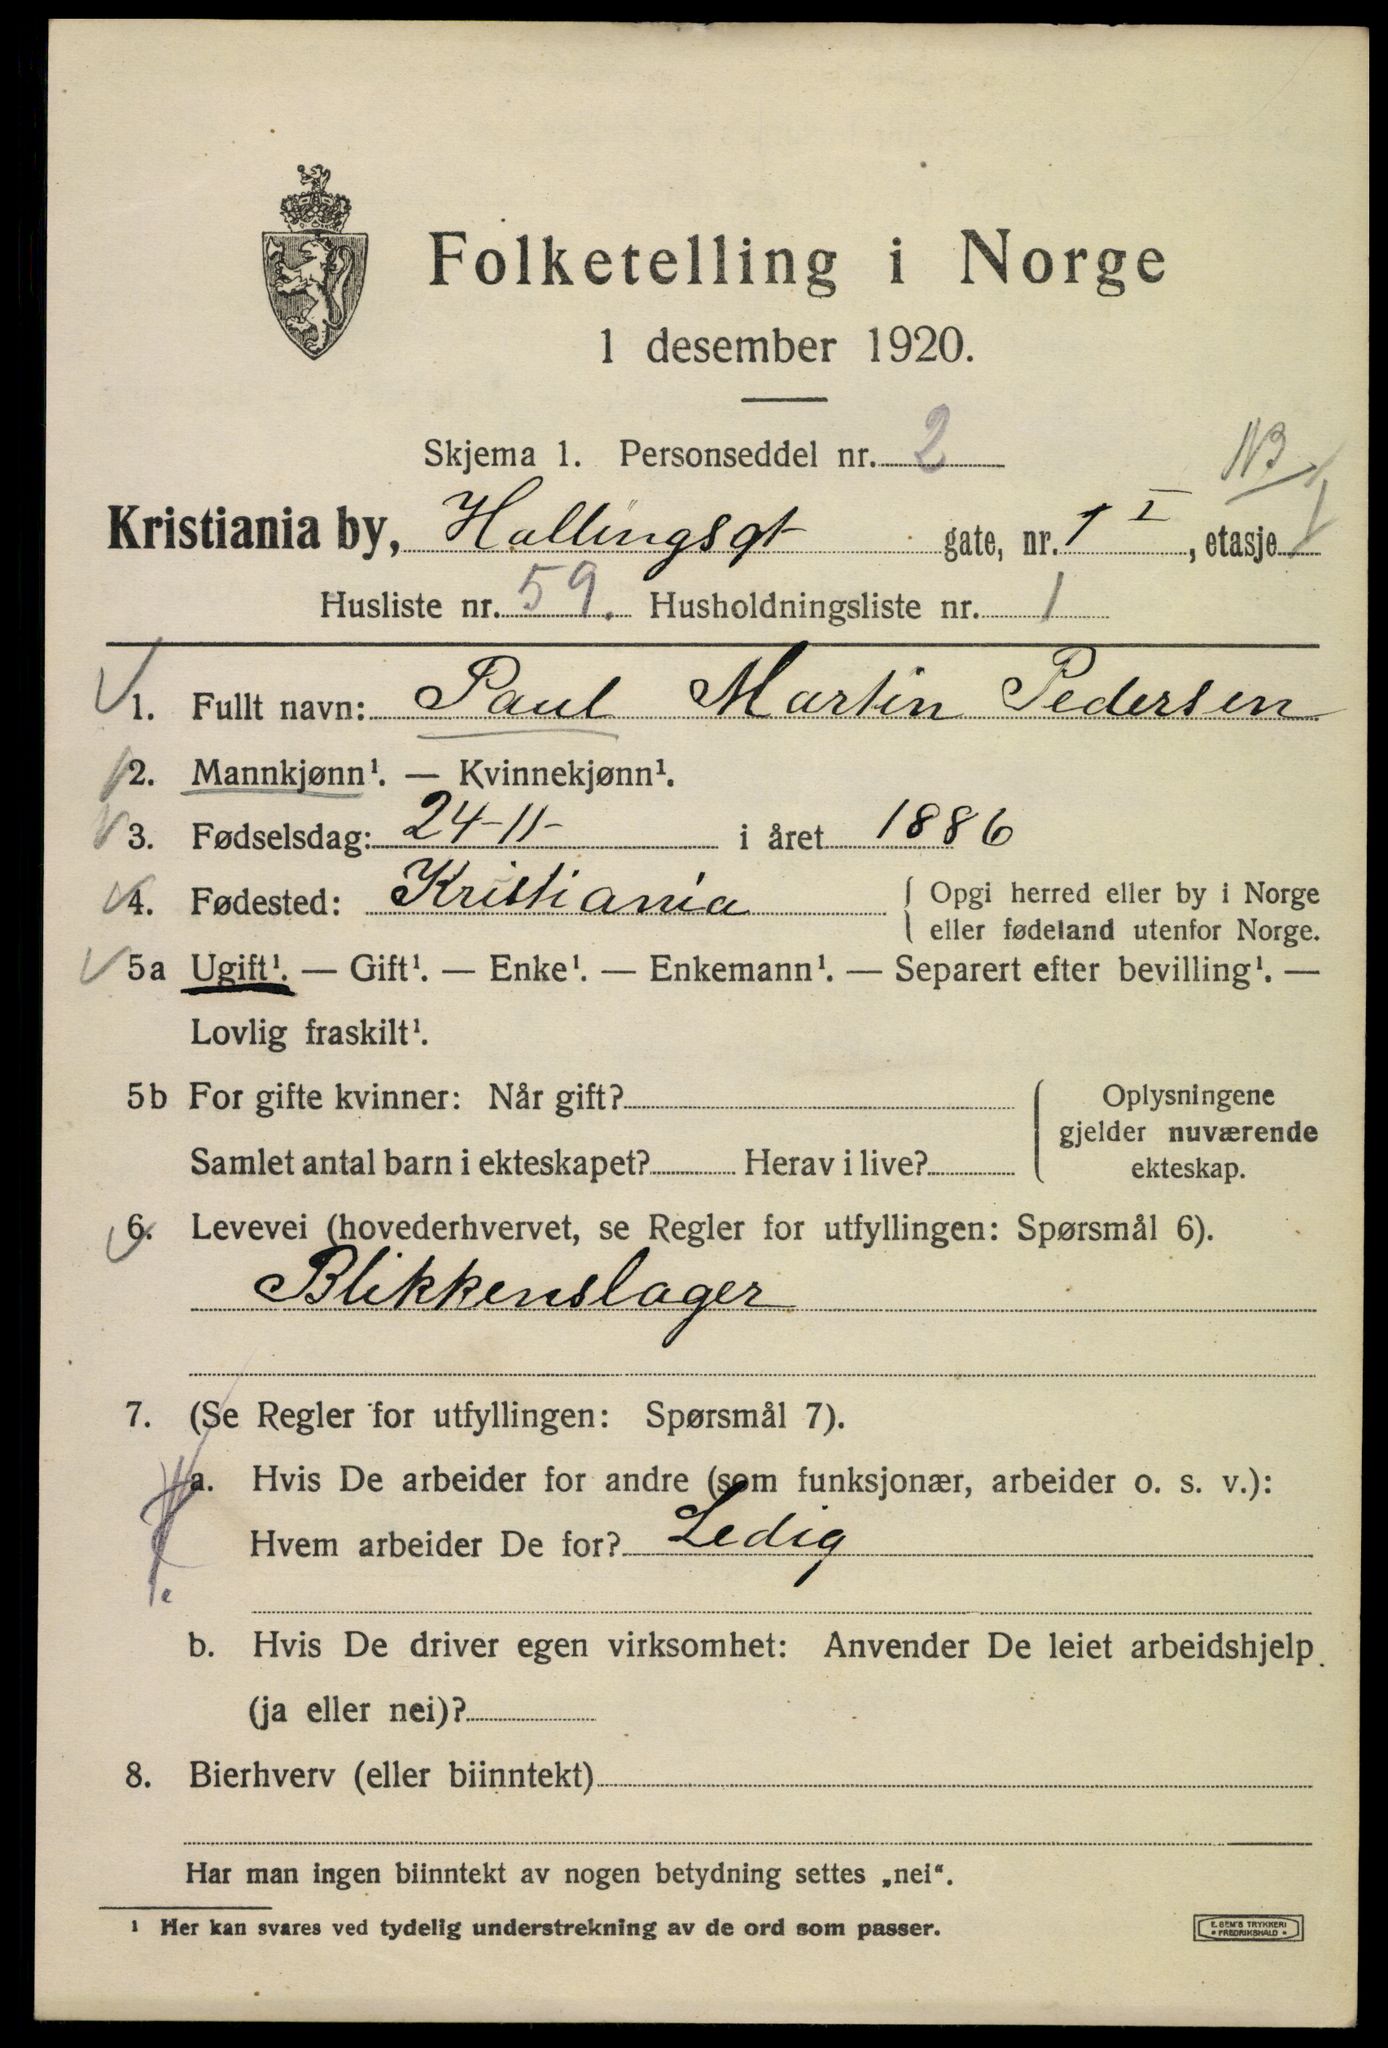 Folketelling i Norge
1 desember 1920.
Skjema 1. Personseddel nr. 2
NB
Kristiania by, Hallingsgt gate, nr. 1 I, etasje
Husliste nr. 59. Husholdningsliste nr. 1
1. Fullt navn: Paul Martin Pedersen
2. Mannkjønn¹. — Kvinnekjønn¹.
3. Fødselsdag: 24-11- i året 1886
4. Fødested: Kristiania
Opgi herred eller by i Norge
eller fødeland utenfor Norge.
5a Ugift¹. — Gift¹. — Enke¹. — Enkemann¹. — Separert efter bevilling¹. —
Lovlig fraskilt¹.
5b For gifte kvinner: Når gift?
Samlet antal barn i ekteskapet? Herav i live?
Oplysningene
gjelder nuværende
ekteskap.
6. Levevei (hovederhvervet, se Regler for utfyllingen: Spørsmål 6).
Blikkenslager
7. (Se Regler for utfyllingen: Spørsmål 7).
a. Hvis De arbeider for andre (som funksjonær, arbeider o. s. v.):
Hvem arbeider De for? Ledig
b. Hvis De driver egen virksomhet: Anvender De leiet arbeidshjelp
(ja eller nei)?
8. Bierhverv (eller biinntekt)
Har man ingen biinntekt av nogen betydning settes „nei“.
¹ Her kan svares ved tydelig understrekning av de ord som passer.
E. SEM'S TRYKKERI
• FREDRIKSHALD •